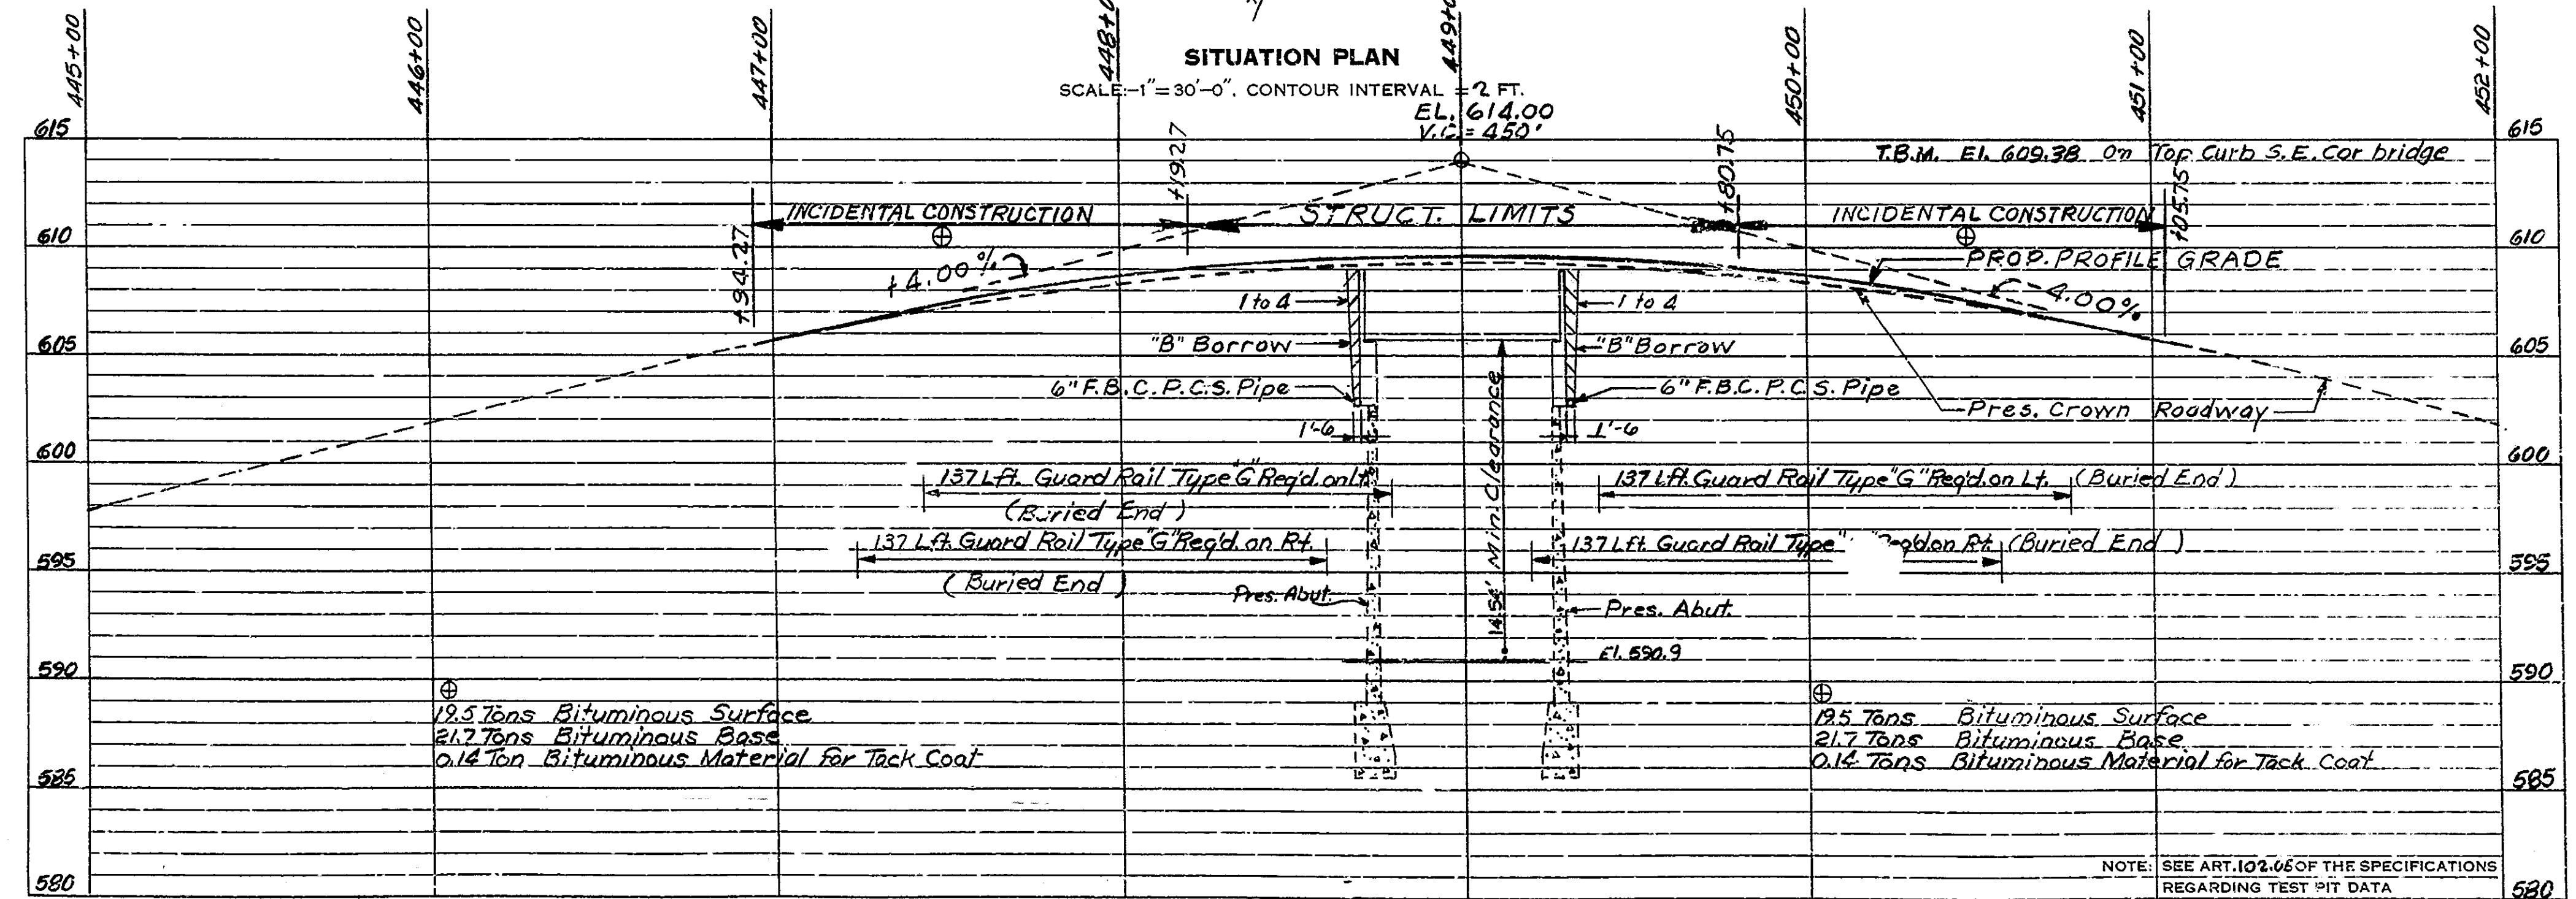 445+00
446+00
447+00
448+0
449+0
450+00
451+00
452+00
SITUATION PLAN
SCALE:-1"=30'-0". CONTOUR INTERVAL = 2 FT.
EL. 614.00
V.C. = 450'
615
615
T.B.M. El. 609.38 On Top Curb S.E. Cor bridge
+94.27
+19.27
+80.75
+05.75
INCIDENTAL CONSTRUCTION
STRUCT. LIMITS
INCIDENTAL CONSTRUCTION
610
610
+4.00%
PROP. PROFILE GRADE
-4.00%
1 to 4
1 to 4
"B" Borrow
"B" Borrow
605
605
6" F.B.C.P.C.S. Pipe
6" F.B.C.P.C.S. Pipe
Pres. Crown Roadway
1'-6
1'-6
14.54' Min. Clearance
600
600
137 Lft. Guard Rail Type "G" Req'd. on Lt.
(Buried End)
137 Lft. Guard Rail Type "G" Req'd. on Lt. (Buried End)
137 Lft. Guard Rail Type "G" Req'd. on Rt.
(Buried End)
137 Lft. Guard Rail Type " Req'd on Rt. (Buried End)
595
595
Pres. Abut.
Pres. Abut.
El. 590.9
590
590
19.5 Tons Bituminous Surface
21.7 Tons Bituminous Base
0.14 Ton Bituminous Material for Tack Coat
19.5 Tons Bituminous Surface
21.7 Tons Bituminous Base
0.14 Tons Bituminous Material for Tack Coat
585
585
NOTE: SEE ART. 102.05 OF THE SPECIFICATIONS
REGARDING TEST PIT DATA
580
580